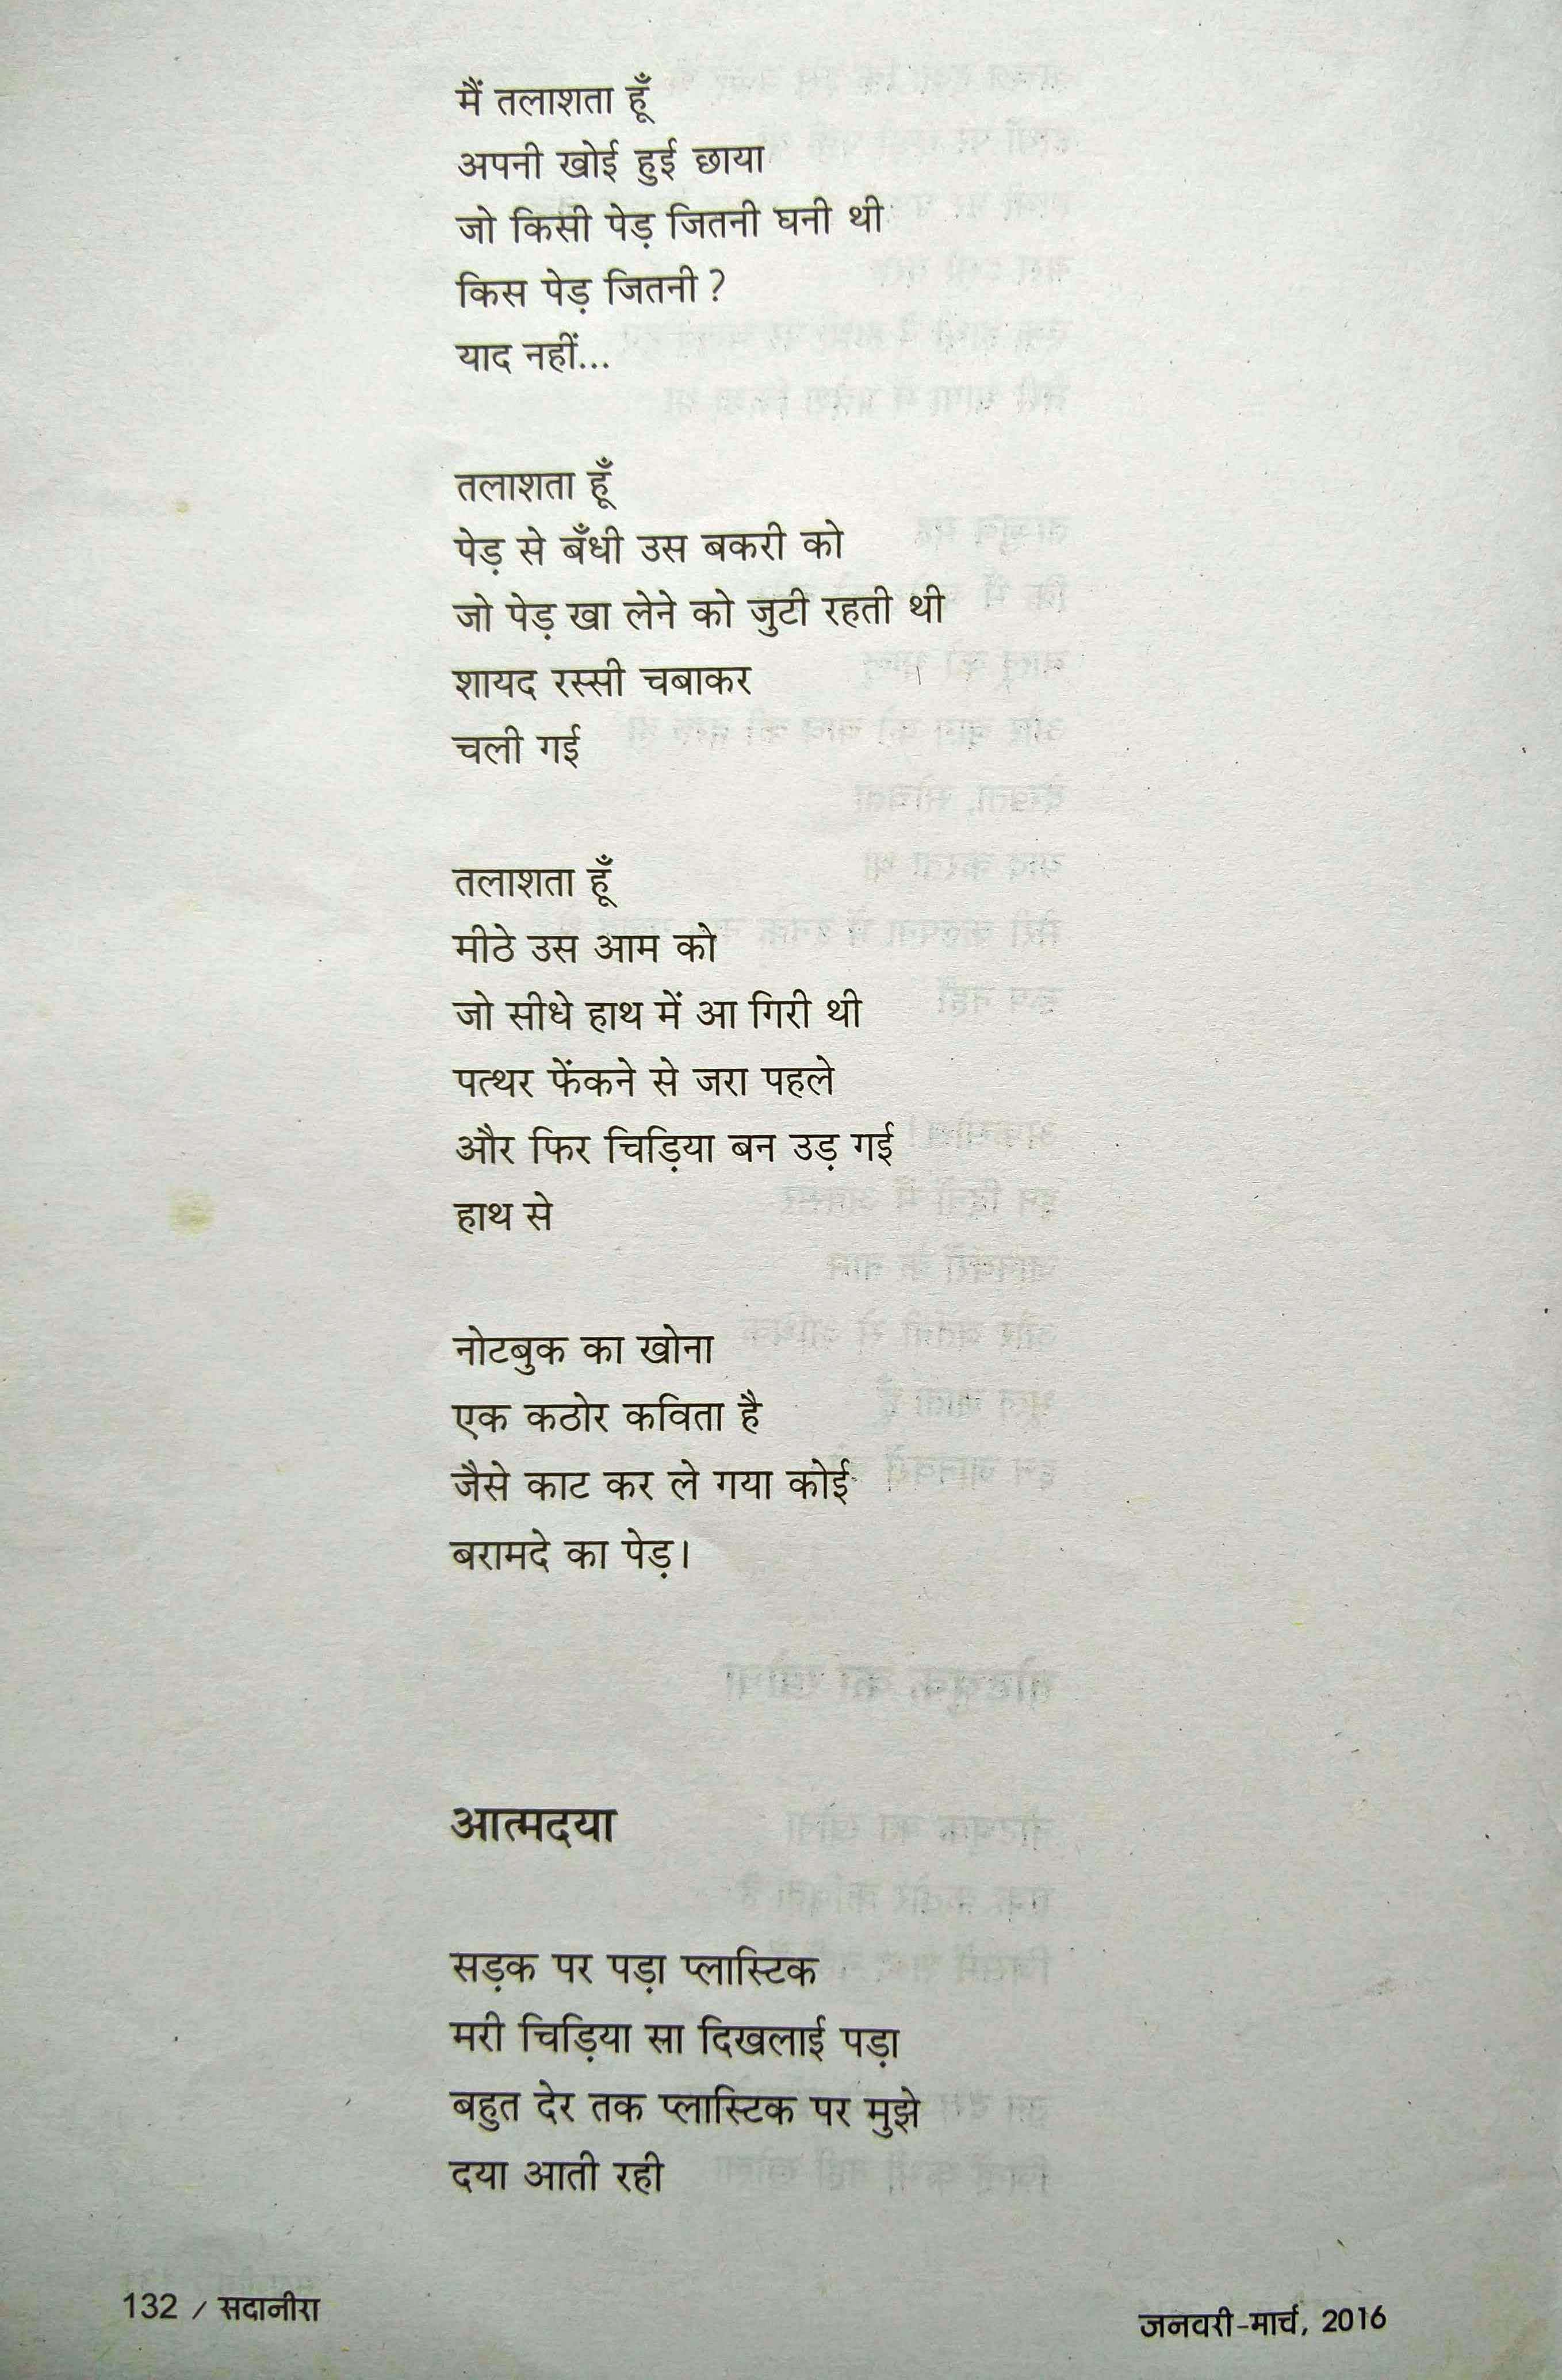 मैं तलाशता हूँ
अपनी खोई हुई छाया
जो किसी पेड़ जितनी घनी थी
किस पेड़ जितनी ?
याद नहीं...
तलाशता हूँ
पेड़ से बँधी उस बकरी को
जो पेड़ खा लेने को जुटी रहती थी
शायद रस्सी चबाकर
चली गई
तलाशता हूँ
मीठे उस आम को
जो सीधे हाथ में आ गिरी थी
पत्थर फेंकने से जरा पहले
और फिर चिड़िया बन उड़ गई
हाथ से
नोटबुक का खोना
एक कठोर कविता है
जैसे काट कर ले गया कोई
बरामदे का पेड़।
आत्मदया
सड़क पर पड़ा प्लास्टिक
मरी चिड़िया सा दिखलाई पड़ा
बहुत देर तक प्लास्टिक पर मुझे
दया आती रही
132 / सदानीरा
जनवरी-मार्च, 2016